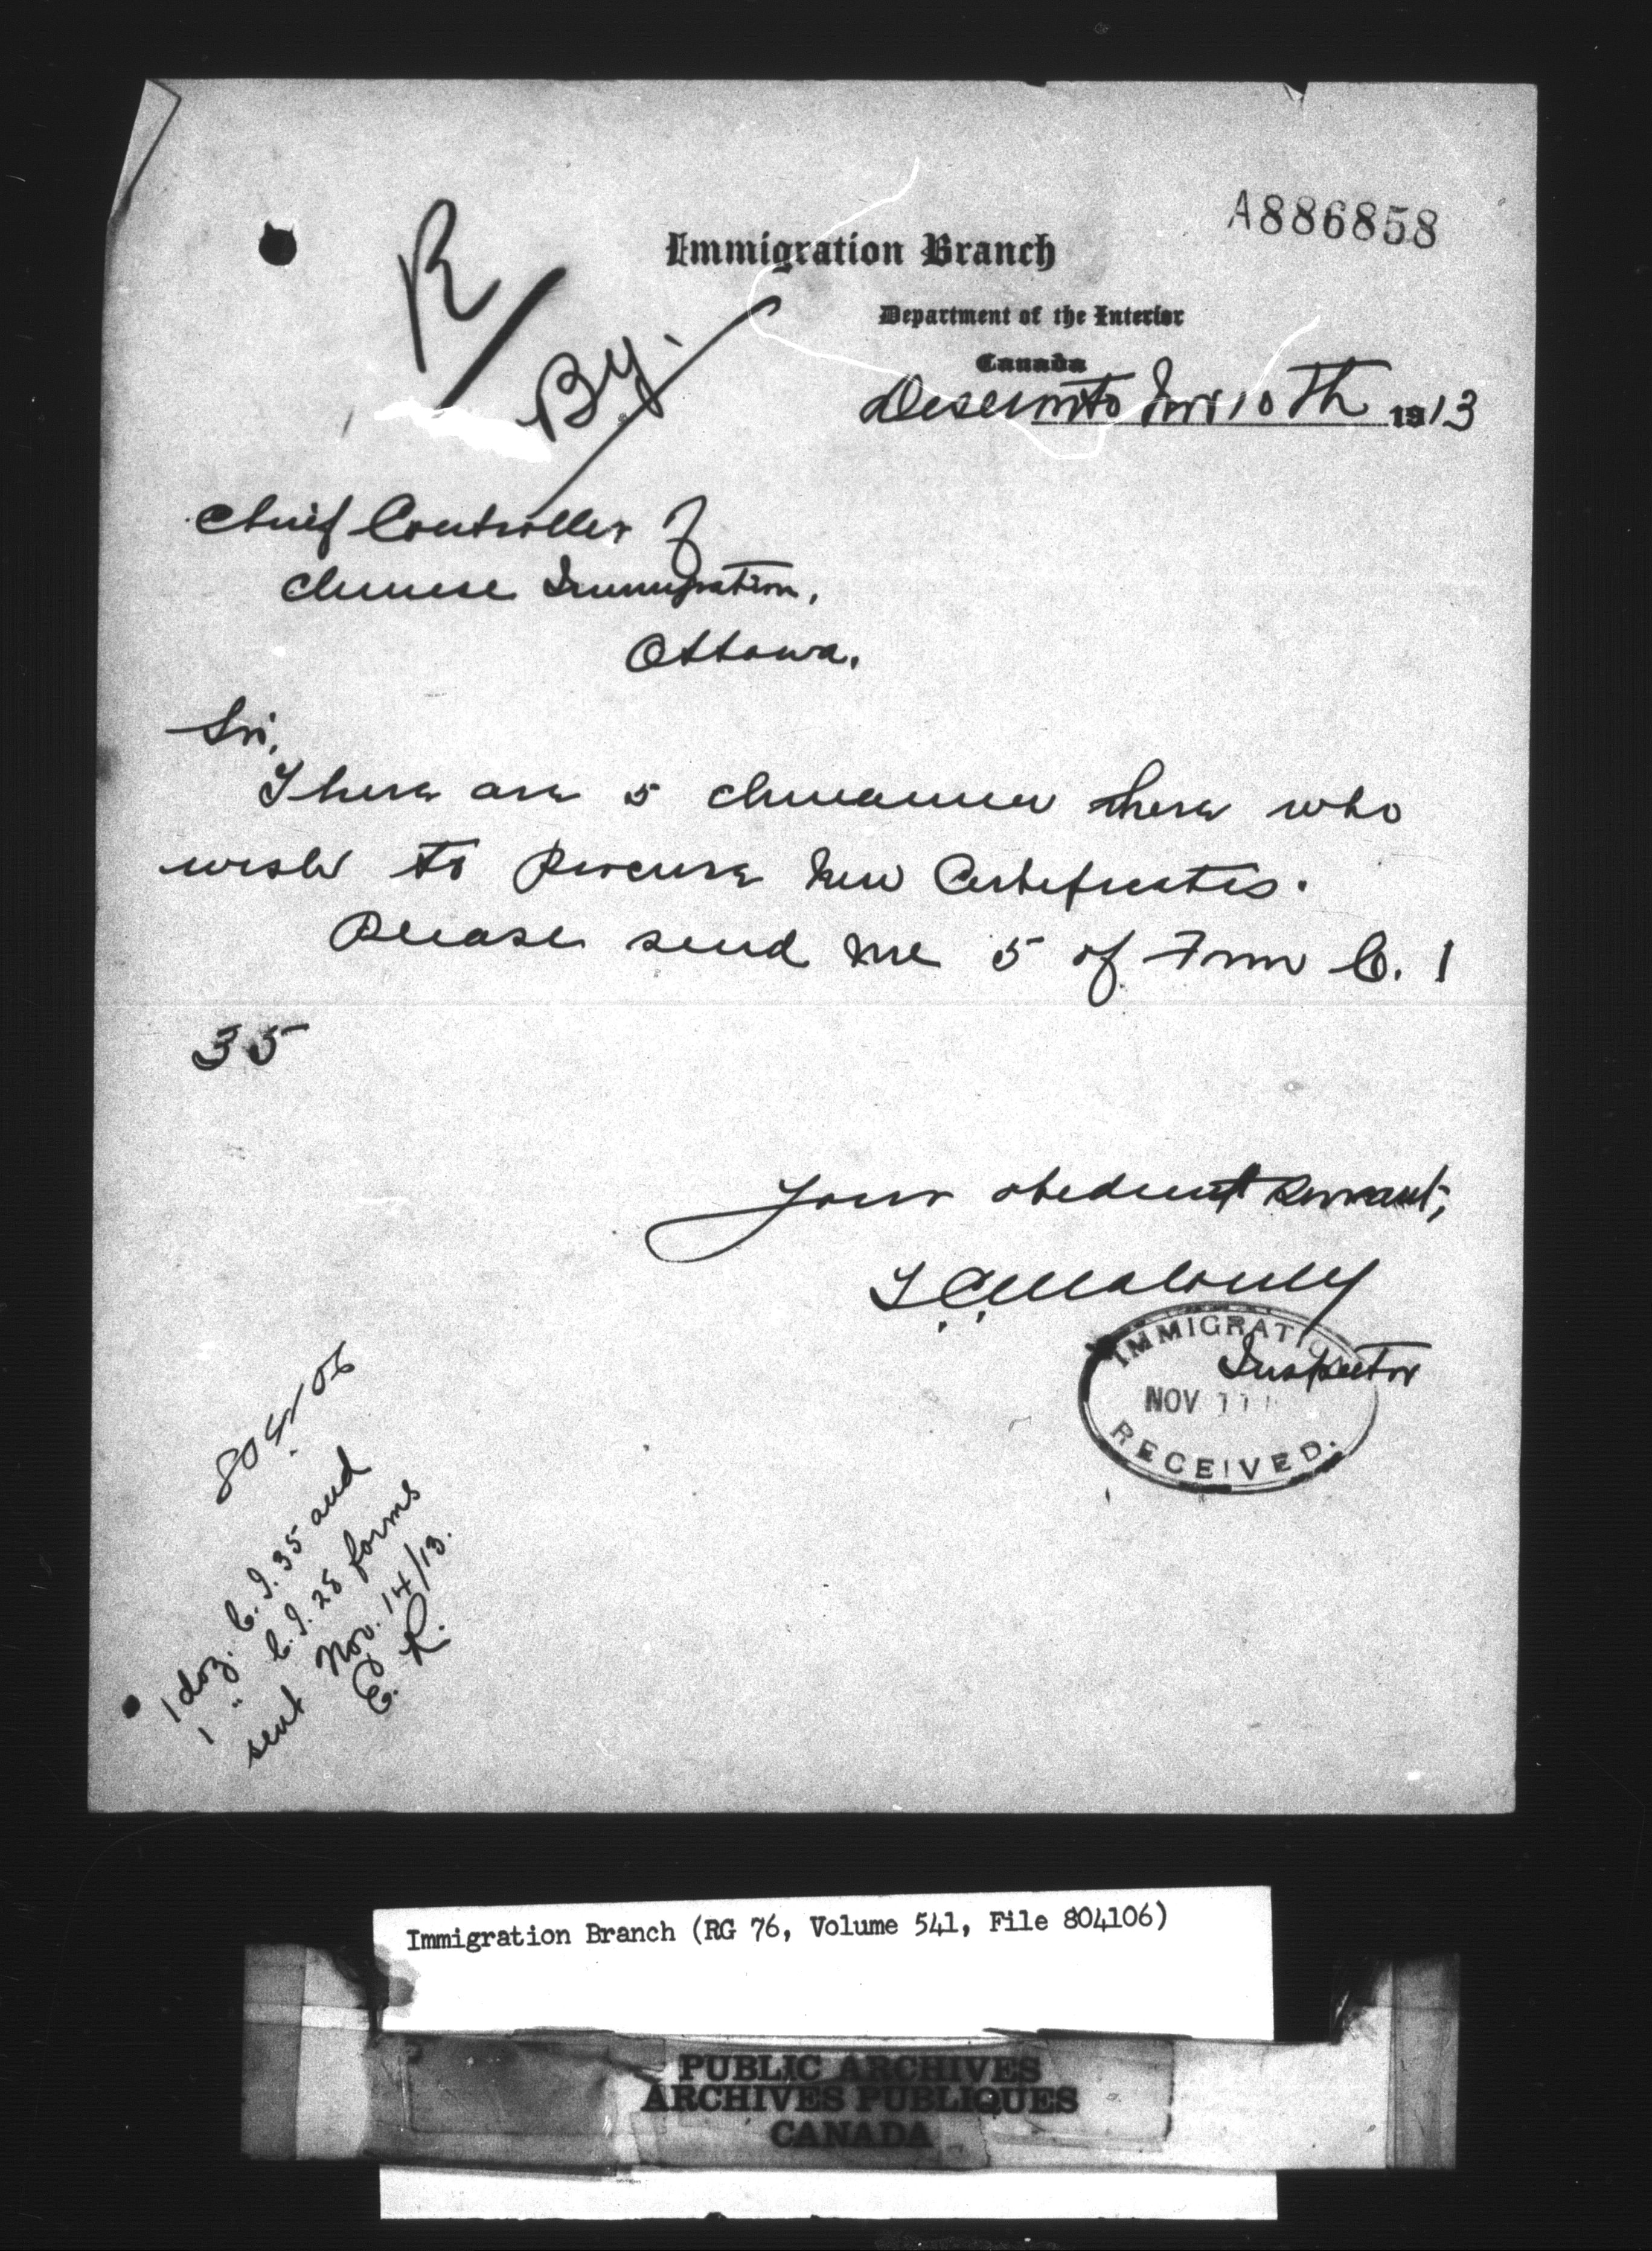 A886858
Immigration Branch
Department of the Interior
Canada
R
By.
Deseronto Nov 10th 1913
Chief Controller of
Chinese Immigration,
Ottawa.
Sir,
There are 5 chinamen here who
wish to procure New Certificates.
Please send me 5 of Form C. I
35
Your obedient servant,
Inspector
IMMIGRATIO
NOV 11
RECEIVED.
804106
1 doz. C.I. 35 and
1 " C.I. 28 forms
sent Nov. 14/13.
E. R.
Immigration Branch (RG 76, Volume 541, File 804106)
PUBLIC ARCHIVES
ARCHIVES PUBLIQUES
CANADA